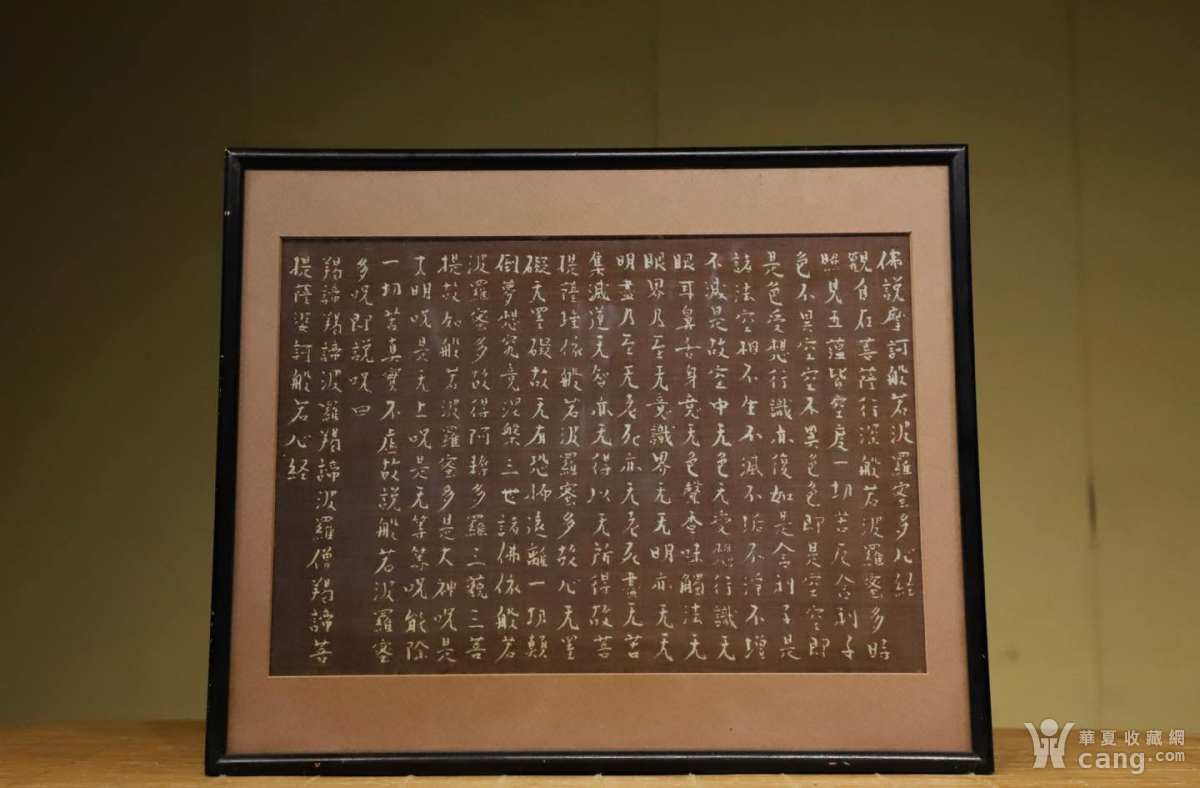 佛説摩訶般若波羅蜜多心経
観自在菩薩行深般若波羅蜜多時
照見五蘊皆空度一切苦厄舎利子
色不異空空不異色色即是空空即
是色受想行識亦復如是舎利子是
諸法空相不生不滅不垢不浄不増
不減是故空中无色无受想行識无
眼耳鼻舌身意无色聲香味觸法无
眼界乃至无意識界无无明亦无无
明盡乃至无老死亦无老死盡无苦
集滅道无智亦无得以无所得故菩
提薩埵依般若波羅蜜多故心无罣
礙无罣礙故无有恐怖遠離一切顛
倒夢想究竟涅槃三世諸佛依般若
波羅蜜多故得阿耨多羅三藐三菩
提故知般若波羅蜜多是大神呪是
大明呪是无上呪是无等等呪能除
一切苦真實不虚故説般若波羅蜜
多呪即説呪曰
羯諦羯諦波羅羯諦波羅僧羯諦菩
提薩婆訶般若心経
華夏收藏網
cang.com